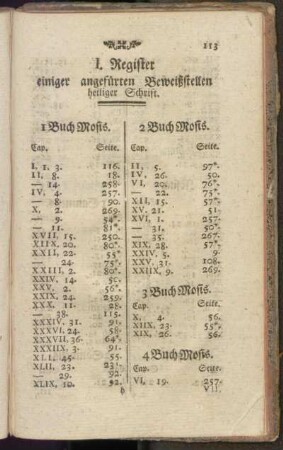 113
I. Register
einiger angefürten Beweißstellen
heiliger Schrift.
1 Buch Mosis.
Cap. Seite.
I. 1. 3. 116.
II, 8. 18.
— 14. 258.
IV, 4. 257.
— 8. 90.
X, 2. 269.
— 9. 54*.
— 11. 81*.
XVII, 15. 250.
XIIX, 20. 80*.
XXII, 22. 55*
— 24. 75*.
XXIII, 2. 80*.
XXIV, 14. 50.
XXV, 2. 56*.
XXIX, 24. 259.
XXX, 11. 28.
— 38. 115.
XXXIV, 31. 91.
XXXVI, 24. 58.
XXXVII, 36. 64*.
XXXIIX, 3. 91.
XLI, 45. 55.
XLII, 23. 231.
— 29. 92.
XLIX, 10. 92.
2 Buch Mosis.
Cap. Seite.
II, 5. 97*.
IV, 26. 50.
VI, 20. 76*.
— 22. 75*.
XII, 15. 57*.
XV, 21. 51.
XVI, 1. 257.
— 31. 50*.
— 35. 267.
XIX, 28. 57*.
XXIV, 5. 9.
XXV, 31. 108.
XXIIX, 9. 269.
3 Buch Mosis.
Cap. Seite.
X, 4. 56.
XIIX, 23. 55*.
XIX, 26. 56.
4 Buch Mosis.
Cap. Seite.
VI, 19. 257.
h VII,